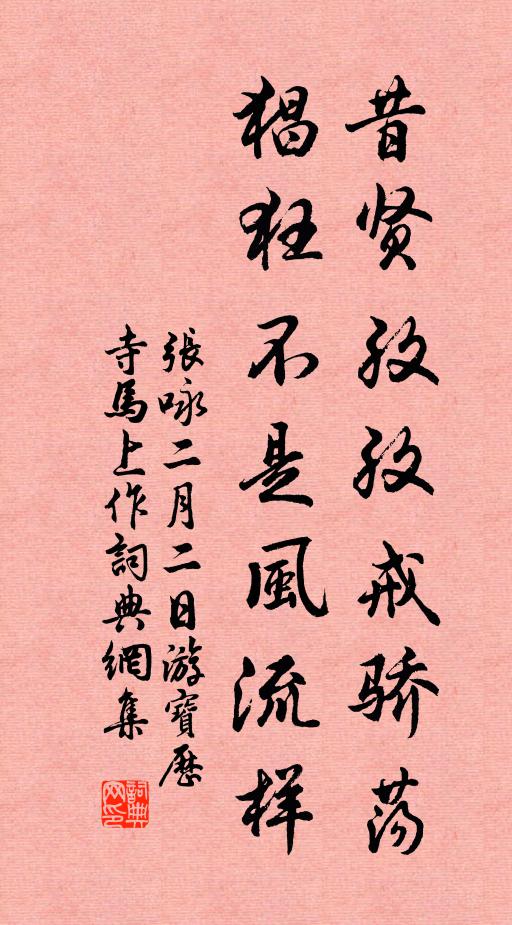 昔贤孜孜戒骄荡
猖狂不是風流样
張咏二月二日游寶歷
寺馬上作詞典網集
詞典
网印